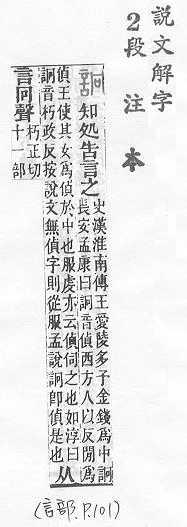 說文解字
2段注本
詗 知処告言之
史漢淮南傳王愛陵多予金錢爲中詗
長安孟康曰詗音偵西方人以反閒爲
偵王使其女爲偵於中也服虔亦云偵伺之也如淳曰
詗音朽政反按說文無偵字則從服孟說詗卽偵是也
从
言冋聲
朽正切
十一部
(言部.P.101)